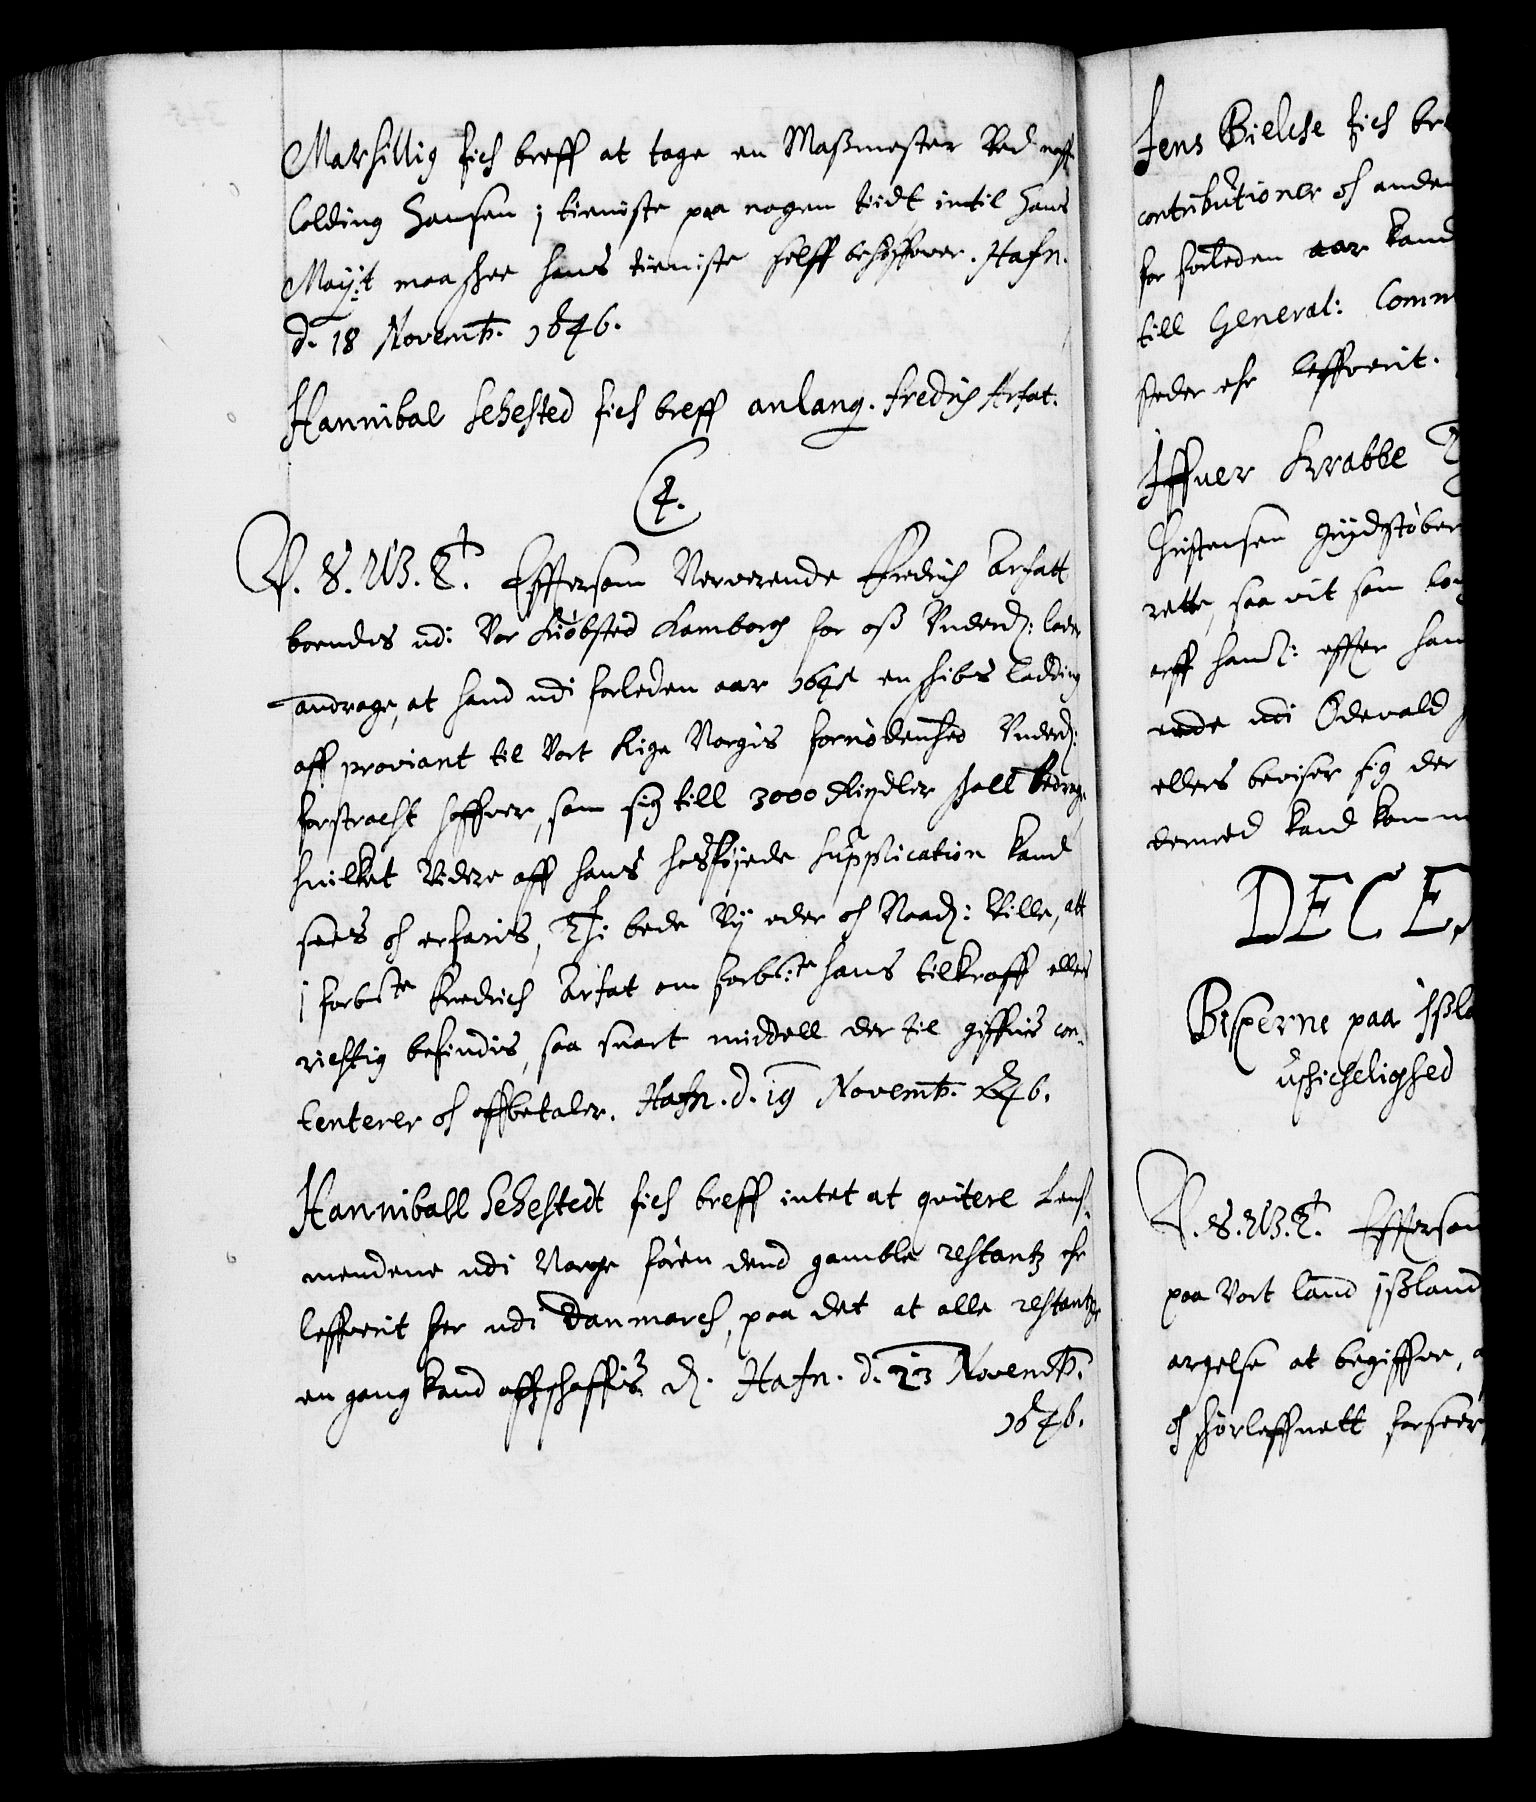 Marsillig fich breff at tage en Maßmester Ved naffn
Colding Hansen i tieniste paa nogen tiidt intil hans
Mayj:t maaskee hans tieniste selff behøffver. Hafn.
d. 18 Novemb. 1646.
Hannibal Sehested fich breff anlang. Fredrich Arfat.
C4.
V. S. G. T. Effttersom Nerverende Fredrich Arfatt
boendis udi Vor Kiøbsted Hamborg for oß Underd: lader
andrage, at hand udi forleden aar 1645 en skibs ladding
aff proviant til Vort Rige Norgis fornødenhed Underd:
forstracht haffver, som sig till 3000 Rixdler skall bedrage
huilket Videre aff hans hosføyede Supplication kand
sees oc erfaris, Thi bede Vy eder oc Naad: Ville, att
i forb:te Fredrich Arfat om forb:te hans tilkraff ellers
richtig befindis, saa snart middell der til giffuis con-
tenterer oc affbetaler. Hafn. d. 19 Novemb. 1646.
Hanniball Sehestedt fich breff intet at qvitere Lens-
mendene udi Norge føren dend gamble restantz ehr
leffverit her udi Danmarch, paa det at alle restantzer
en gang kand affskaffis. D. Hafn. d. 23 Novemb.
1646.
Jens Bielche fich bre
contributioner oc anden
for forleden aar kand
till General: Comm
steder ehr leffverit.
Iffuer Krabbe
Christensen Grydstøber
rette, saa vit som
arff hanß: effter ham
rede udi Odevald
ellers beviser sig der
dermed kand komm
DECE
Bisperne paa Ißla
uskichelighed
V. S. G. T. Efftersom
paa Vort land Ißland
argelse at begiffve,
oc skørleffnett forseer